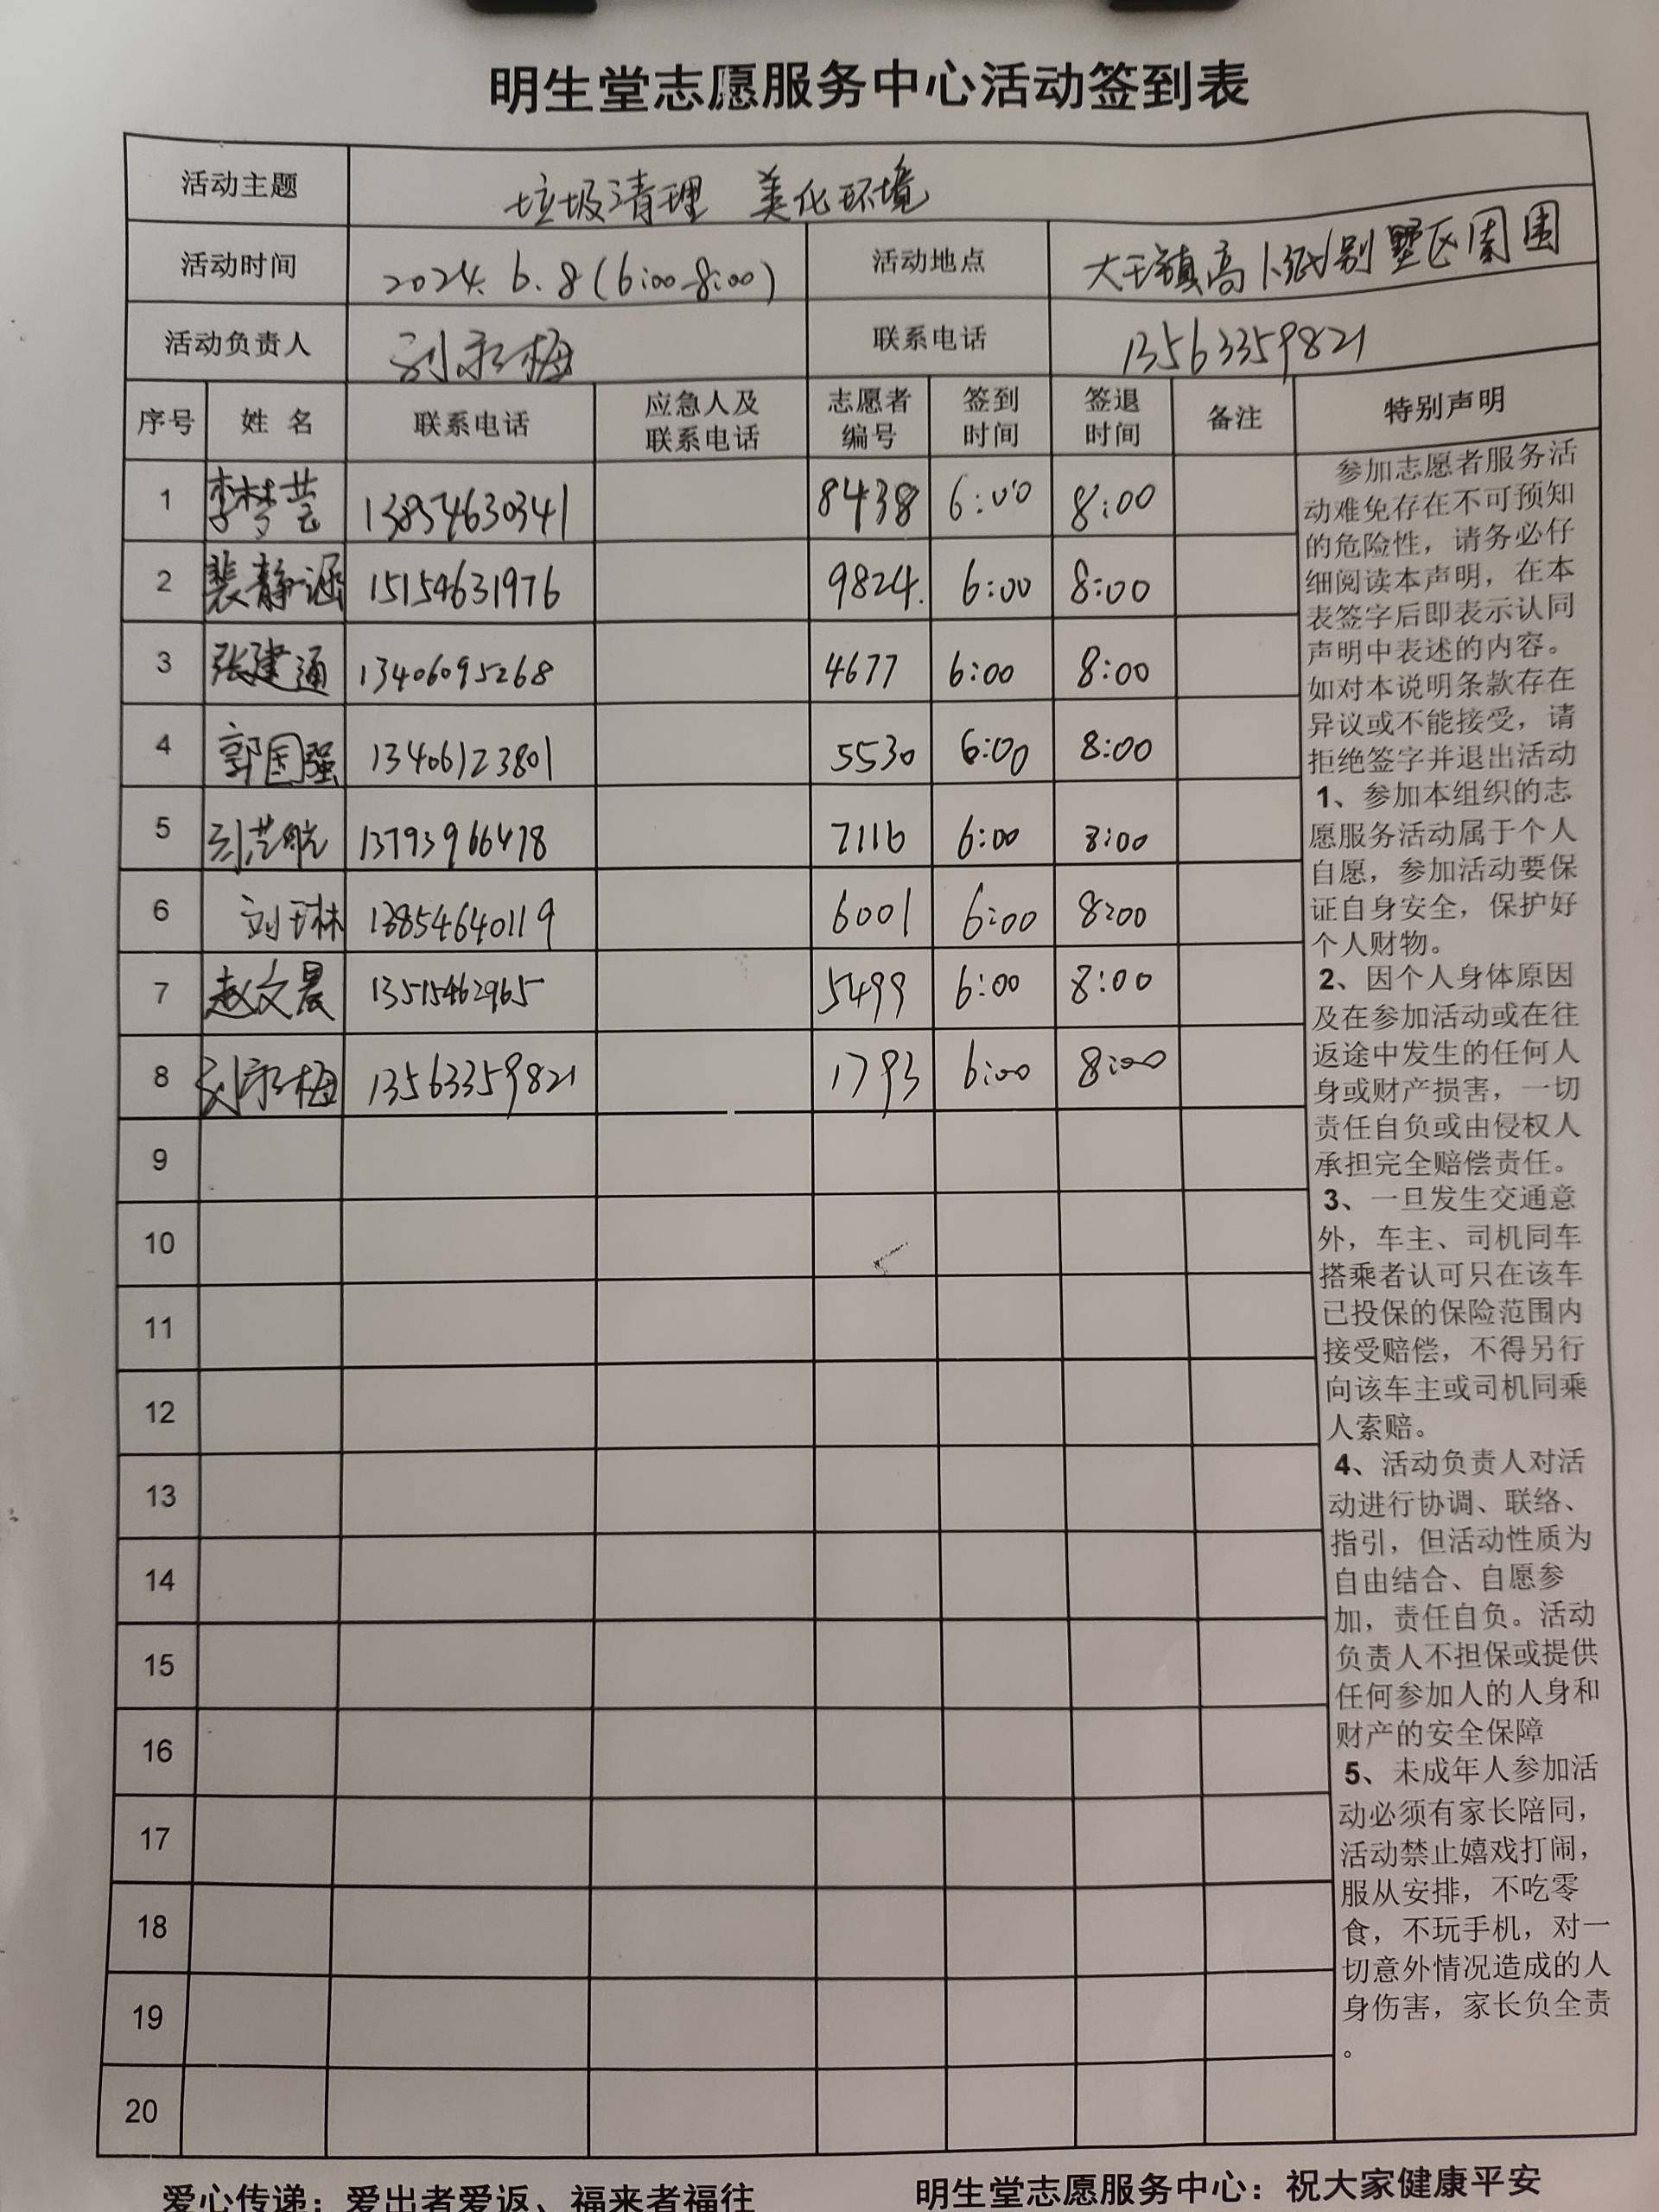 明生堂志愿服务中心活动签到表
活动主题 垃圾清理 美化环境
活动时间 2024. 6. 8 (6:00-8:00) 活动地点 大王镇高 别墅区周围
活动负责人 刘永梅 联系电话 13563359821
序号 姓名 联系电话 应急人及联系电话 志愿者编号 签到时间 签退时间 备注 特别声明
1 李梦芸 13854630341 8438 6:00 8:00
2 裴静涵 15154631976 9824. 6:00 8:00
3 张建通 13406095268 4677 6:00 8:00
4 郭国强 13406123801 5530 6:00 8:00
5 刘艺航 13793966478 7116 6:00 8:00
6 刘玉琳 13854640119 6001 6:00 8:00
7 赵文晨 13515462965 5499 6:00 8:00
8 刘永梅 13563359821 1793 6:00 8:00
9
10
11
12
13
14
15
16
17
18
19
20
参加志愿者服务活
动难免存在不可预知
的危险性，请务必仔
细阅读本声明，在本
表签字后即表示认同
声明中表述的内容。
如对本说明条款存在
异议或不能接受，请
拒绝签字并退出活动
1、参加本组织的志
愿服务活动属于个人
自愿，参加活动要保
证自身安全，保护好
个人财物。
2、因个人身体原因
及在参加活动或在往
返途中发生的任何人
身或财产损害，一切
责任自负或由侵权人
承担完全赔偿责任。
3、一旦发生交通意
外，车主、司机同车
搭乘者认可只在该车
已投保的保险范围内
接受赔偿，不得另行
向该车主或司机同乘
人索赔。
4、活动负责人对活
动进行协调、联络、
指引，但活动性质为
自由结合、自愿参
加，责任自负。活动
负责人不担保或提供
任何参加人的人身和
财产的安全保障
5、未成年人参加活
动必须有家长陪同，
活动禁止嬉戏打闹，
服从安排，不吃零
食，不玩手机，对一
切意外情况造成的人
身伤害，家长负全责
。
爱心传递：爱出者爱返、福来者福往 明生堂志愿服务中心：祝大家健康平安